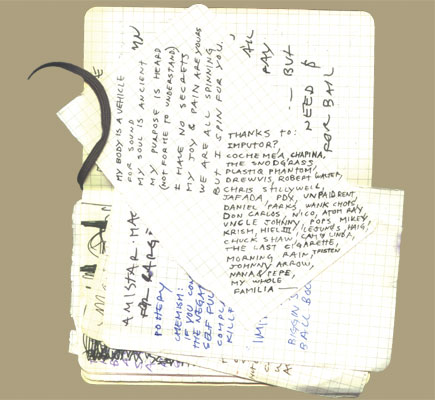 MY BODY IS A VEHICLE
FOR SOUND
MY SOUL IS ANCIENT
MY PURPOSE IS HEARD
(NOT FOR ME TO UNDERSTAND)
I HAVE NO SECRETS
MY JOY & PAIN ARE YOURS
WE ARE ALL SPINNING,
BUT I SPIN FOR YOU,
ALL
PAY
— BUT
NEED $
FOR BAIL
THANKS TO:
IMPUTOR?
COCHEMEA, CHAPINA,
THE SNODGRASS,
PLASTIQ PHANTOM,
DREWVIS, ROBERT
CHRIS STILLWELL,
JAFADA, PDX, UNPAID RENT,
DANIEL PARKS, WANK CHOPS,
DON CARLOS, NICO, ATOM RAY
UNCLE JOHNNY, POPS, MIKEY,
KRISH, HIEU, LEGUNDS, HAIG,
CHUCK SHAW, CAM & LINDA,
THE LAST CIGARETTE,
MORNING RAIN, TRISTEN
JOHNNY ARROW,
NANA & PEPE,
MY WHOLE
FAMILIA —
AMISTAR · MAC
FOR
POTTERY
CHEMISM:
IF YOU CON
THE NEGAT
SELF FUL
COMPL
KILLF
IM
BIGGIN
BALL BO